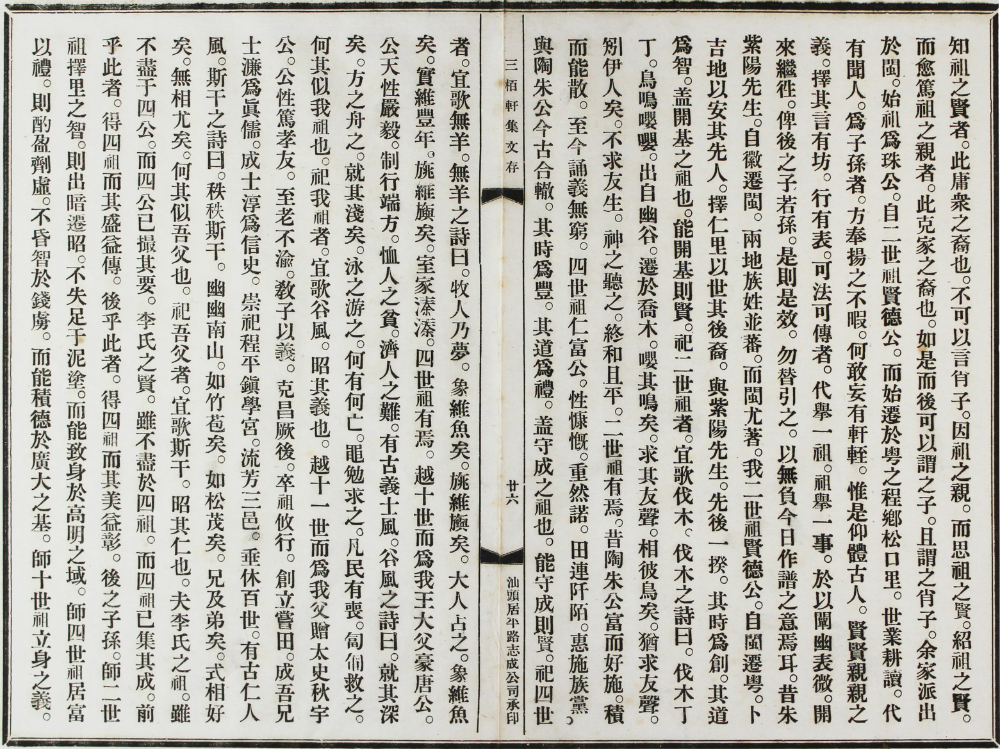 知祖之賢者。此庸衆之裔也。不可以言肖子。因祖之親。而思祖之賢。紹祖之賢。
而愈篤祖之親者。此克家之裔也。如是而後可以謂之子。且謂之肖子。余家派出
於閩。始祖爲珠公。自二世祖賢德公。而始遷於粤之程鄉松口里。世業耕讀。代
有聞人。爲子孫者。方奉揚之不暇。何敢妄有軒輊。惟是仰體古人。賢賢親親之
義。擇其言有坊。行有表。可法可傳者。代舉一祖。祖舉一事。於以闡幽表微。開
來繼徃。俾後之子若孫。是則是效。勿替引之。以無負今日作譜之意焉耳。昔朱
紫陽先生。自徽遷閩。兩地族姓並蕃。而閩尤著。我二世祖賢德公。自閩遷粤。卜
吉地以安其先人。擇仁里以世其後裔。與紫陽先生。先後一揆。其時為創。其道
爲智。盖開基之祖也。能開基則賢。祀二世祖者。宜歌伐木。伐木之詩曰。伐木丁
丁。鳥鳴嚶嚶。出自幽谷。遷於喬木。嚶其鳴矣。求其友聲。相彼鳥矣。猶求友聲。
矧伊人矣。不求友生。神之聽之。終和且平。二世祖有焉。昔陶朱公富而好施。積
而能散。至今誦義無窮。四世祖仁富公。性慷慨。重然諾。田連阡陌。惠施族黨。
與陶朱公今古合轍。其時爲豐。其道爲禮。盖守成之祖也。能守成則賢。祀四世
三栢軒集文存
廿六
汕頭居平路志成公司承印
者。宜歌無羊。無羊之詩曰。牧人乃夢。象維魚矣。旐維旟矣。大人占之。象維魚
矣。實維豐年。旐維旟矣。室家溱溱。四世祖有焉。越十世而爲我王大父豪唐公。
公天性嚴毅。制行端方。恤人之貧。濟人之難。有古義士風。谷風之詩曰。就其深
矣。方之舟之。就其淺矣。泳之游之。何有何亡。黽勉求之。凡民有喪。匍匐救之。
何其似我祖也。祀我祖者。宜歌谷風。昭其義也。越十一世而爲我父贈太史秋宇
公。公性篤孝友。至老不渝。敎子以義。克昌厥後。卒祖攸行。創立嘗田。成吾兄
士濂爲眞儒。成士淳爲信史。崇祀程平鎭學宮。流芳三邑。垂休百世。有古仁人
風。斯干之詩曰。秩秩斯干。幽幽南山。如竹苞矣。如松茂矣。兄及弟矣。式相好
矣。無相尤矣。何其似吾父也。祀吾父者。宜歌斯干。昭其仁也。夫李氏之祖。雖
不盡于四公。而四公已撮其要。李氏之賢。雖不盡於四祖。而四祖已集其成。前
乎此者。得四祖而其盛益傳。後乎此者。得四祖而其美益彰。後之子孫。師二世
祖擇里之智。則出暗遷昭。不失足于泥塗。而能致身於高明之域。師四世祖居富
以禮。則酌盈劑虛。不昏智於錢虜。而能積德於廣大之基。師十世祖立身之義。